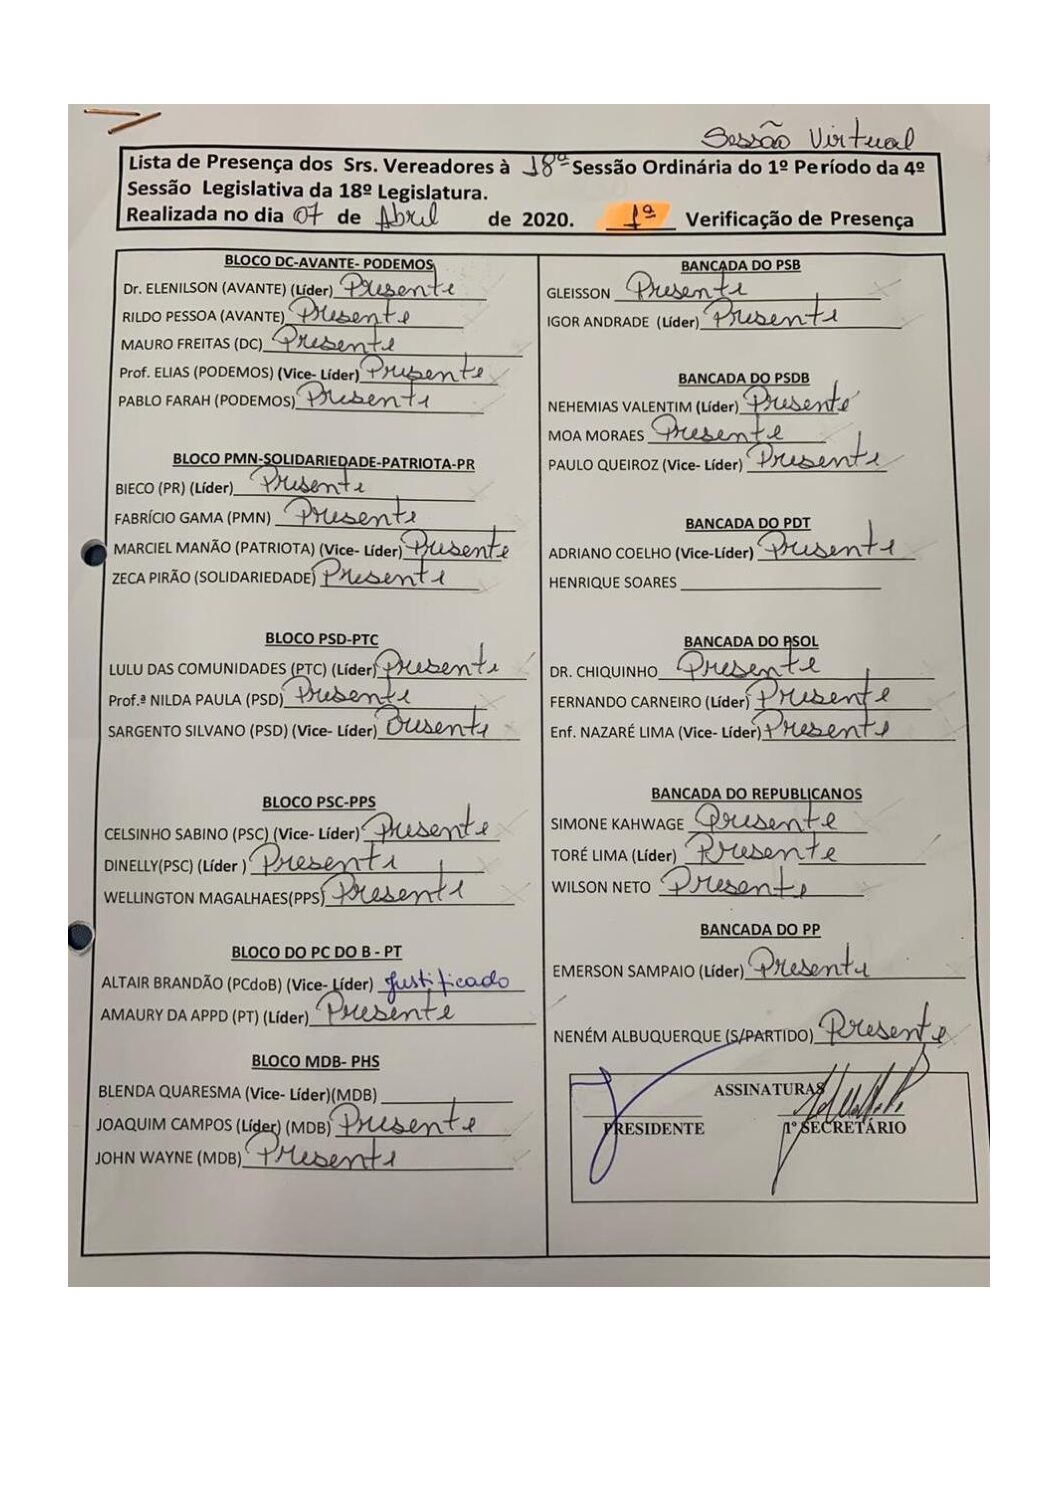 Sessão Virtual
Lista de Presença dos Srs. Vereadores à 18ª Sessão Ordinária do 1º Período da 4º
Sessão Legislativa da 18º Legislatura.
Realizada no dia 07 de Abril de 2020. 1ª Verificação de Presença
BLOCO DC-AVANTE- PODEMOS
Dr. ELENILSON (AVANTE) (Líder) Presente
RILDO PESSOA (AVANTE) Presente
MAURO FREITAS (DC) Presente
Prof. ELIAS (PODEMOS) (Vice- Líder) Presente
PABLO FARAH (PODEMOS) Presente
BLOCO PMN-SOLIDARIEDADE-PATRIOTA-PR
BIECO (PR) (Líder) Presente
FABRÍCIO GAMA (PMN) Presente
MARCIEL MANÃO (PATRIOTA) (Vice- Líder) Presente
ZECA PIRÃO (SOLIDARIEDADE) Presente
BLOCO PSD-PTC
LULU DAS COMUNIDADES (PTC) (Líder) Presente
Prof.ª NILDA PAULA (PSD) Presente
SARGENTO SILVANO (PSD) (Vice- Líder) Presente
BLOCO PSC-PPS
CELSINHO SABINO (PSC) (Vice- Líder) Presente
DINELLY(PSC) (Líder ) Presente
WELLINGTON MAGALHAES(PPS) Presente
BLOCO DO PC DO B - PT
ALTAIR BRANDÃO (PCdoB) (Vice- Líder) Justificado
AMAURY DA APPD (PT) (Líder) Presente
BLOCO MDB- PHS
BLENDA QUARESMA (Vice- Líder)(MDB)
JOAQUIM CAMPOS (Líder) (MDB) Presente
JOHN WAYNE (MDB) Presente
BANCADA DO PSB
GLEISSON Presente
IGOR ANDRADE (Líder) Presente
BANCADA DO PSDB
NEHEMIAS VALENTIM (Líder) Presente
MOA MORAES Presente
PAULO QUEIROZ (Vice- Líder) Presente
BANCADA DO PDT
ADRIANO COELHO (Vice-Líder) Presente
HENRIQUE SOARES
BANCADA DO PSOL
DR. CHIQUINHO Presente
FERNANDO CARNEIRO (Líder) Presente
Enf. NAZARÉ LIMA (Vice- Líder) Presente
BANCADA DO REPUBLICANOS
SIMONE KAHWAGE Presente
TORÉ LIMA (Líder) Presente
WILSON NETO Presente
BANCADA DO PP
EMERSON SAMPAIO (Líder) Presente
NENÉM ALBUQUERQUE (S/PARTIDO) Presente
ASSINATURAS
PRESIDENTE 1º SECRETÁRIO